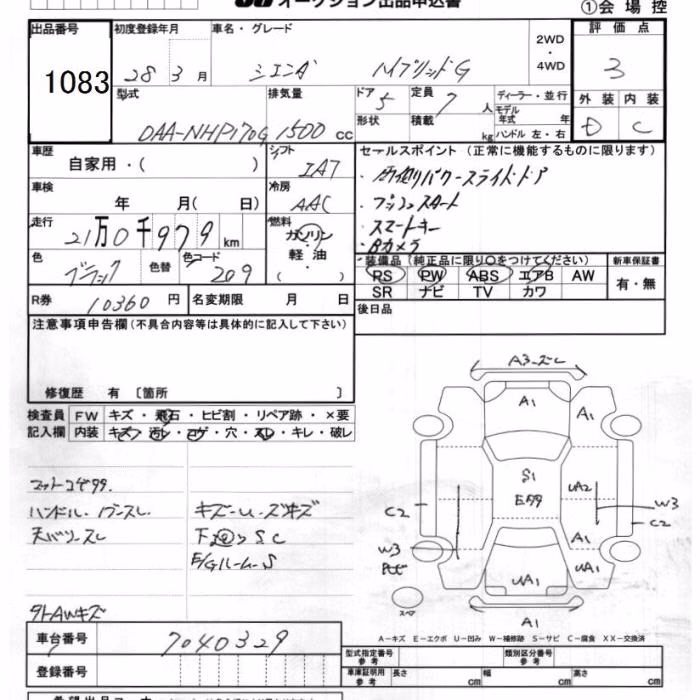 オークション出品申込書
①会場控
出品番号 初度登録年月 車名・グレード 2WD・4WD 評価点
1083 28年3月 シエンタ ハイブリッドG 3
型式 排気量 ドア 5 定員 7人 ディーラー・並行 外装 内装
DAA-NHP170G 1500cc 形状 積載 kg モデル年式 年 ハンドル 左・右 D C
車歴 シフト セールスポイント (正常に機能するものに限ります)
自家用・( ) IAT ・両側パワースライドドア
車検 冷房 ・プッシュスタート
年 月( 日) AAC ・スマートキー
走行 燃料 ・Bカメラ
21万0千979km ガソリン・軽油・
色 色替 色コード 装備品 (純正品に限り○をつけてください) 新車保証書
ブラック 209 RS PW ABS エアB AW 有・無
R券 10360円 名変期限 月 日 SR ナビ TV カワ
注意事項申告欄(不具合内容等は具体的に記入して下さい) 後日品
修復歴 有 〔箇所 〕
検査員 FW キズ・飛石・ヒビ割・リペア跡・×要
記入欄 内装 キズ・汚レ・コゲ・穴・スレ・キレ・破レ
A3・ズレ
A1 A1
S1
UA2
C2 W3
C2
W3 A1
UA1 UA1
A1
スペア
ハンドル・
下廻りSC
E/GルームS
外AWキズ
A-キズ E-エクボ U-凹み W-補修跡 S-サビ C-腐食 XX-交換済
車台番号 7040329 型式指定番号 参考 類別区分番号 参考
登録番号 車庫証明用 参考 長さ cm 幅 cm 高さ cm